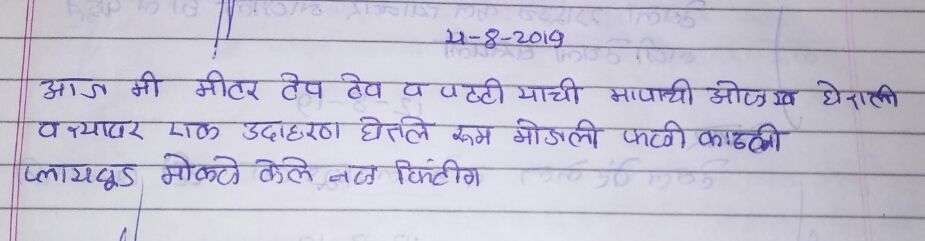 ५-8-2019
आज मी मीटर टेप टेप व पट्टी याची मापाची ओळख घेतली
व त्यावर एक उदाहरण घेतले रूम मोजली फळी काढली
प्लायवूड मोकळे केले नळ फिटींग